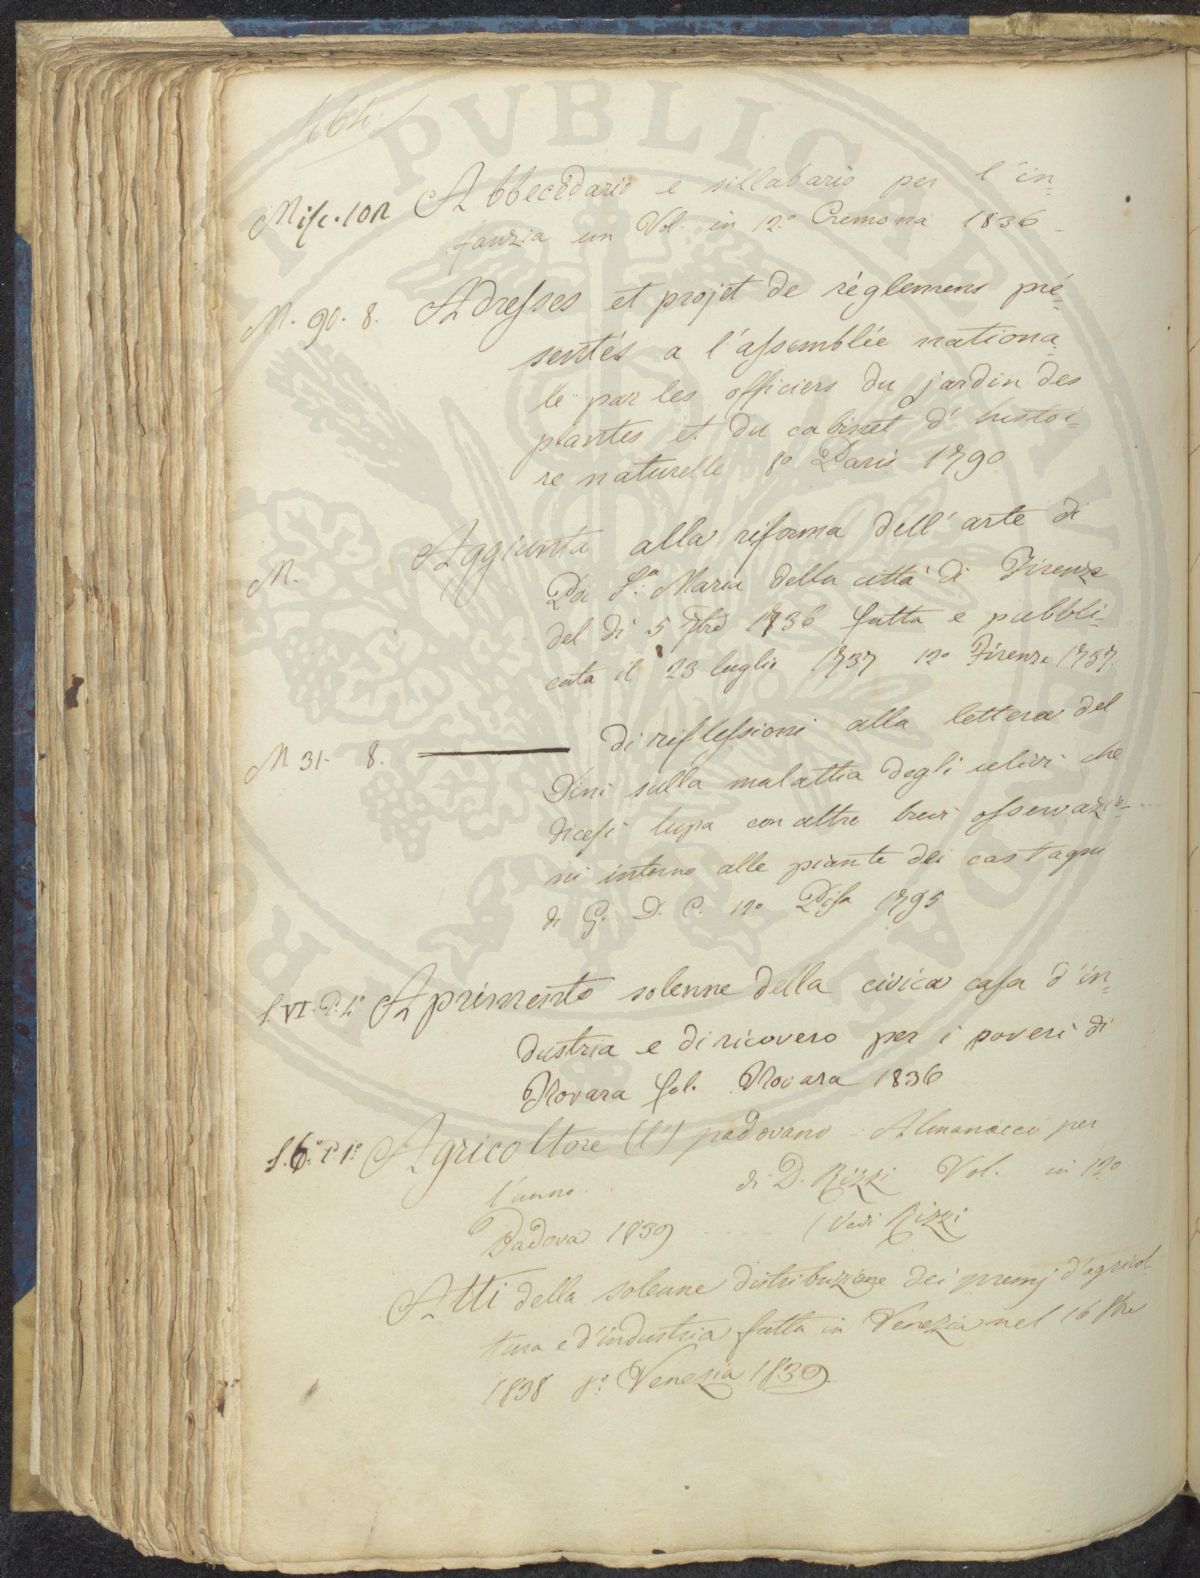 464.
Misc. 102 Abbecedario e sillabario per l'in=
fanzia un Vol. in 12.° Cremona 1836
M. 90. 8. Adresses et projet de réglemens pré=
sentés a l'assemblée nationa=
le par les officiers du jardin des
plantes et du cabinet d'histoi=
re naturelle 8° Paris 1790
M. Aggiunta alla riforma dell'arte di
Por S.a Maria della città di Firenze
del dì 5 7bre 1736 fatta e pubbli=
cata il 23 luglio 1737 12° Firenze 1737.
M 31- 8. ——— di riflessioni alla lettera del
Dini sulla malattia degli ulivi che
dicesi lupa con altre brevi osservazio=
ni intorno alle piante dei castagni
di G. D. C. 12° Pisa 1795
S. VI. P. 4° Aprimento solenne della civica casa d'in=
dustria e di ricovero per i poveri di
Novara fol. Novara 1836
S. 6.° P 1° Agricoltore (l') padovano - Almanacco per
l'anno . . di D. Rizzi Vol. in 12°
Padova 1839 ..... (Vedi Rizzi
Atti della solenne distribuzione dei premj d'agricol=
tura e d'industria fatta in Venezia nel 16 8bre
1838 8° Venezia 1839.
PVBLICAE